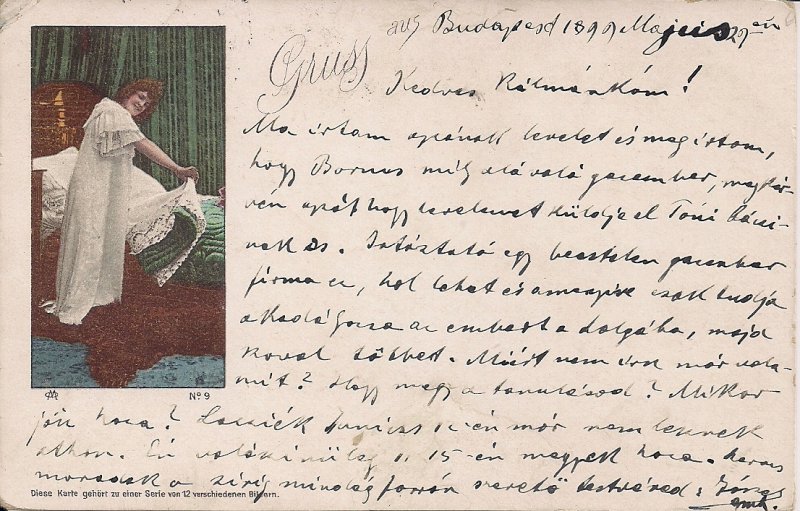 Gruss aus Budapest 1899 Majus 29 én
Kedves Kálmánkám!
Ma írtam apának levelet és megírtam,
hogy Bornus míly alávaló gazember, megkér-
vén apát hogy levelemet küldje el Tóni bácsi-
nak is. egy becstelen gazember
firma ez, hol lehet és csak tudja
az embert a dologba, majd
többet. Miért nem írsz már vala-
mit? Hogy megy a tanulásod? Mikor
jön haza? Lacziék Junius -én már nem lesznek
otthon. Én valószinüleg 15-én megyek haza.
maradok a sirig mindég forrón szerető testvéred:
No 9
Diese Karte gehört zu einer Serie von 12 verschiedenen Bildern.